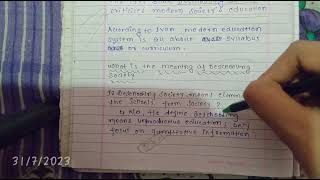 criticize modern society's education
According to Ivan modern education
system is all about syllabus
or curriculum.
What is the meaning of Deschooling
Society
Deschooling Society means eliminate
the schools from society ?
No, He define deschooling
means unproductive education, only
focus on quantitative information.
31/7/2023